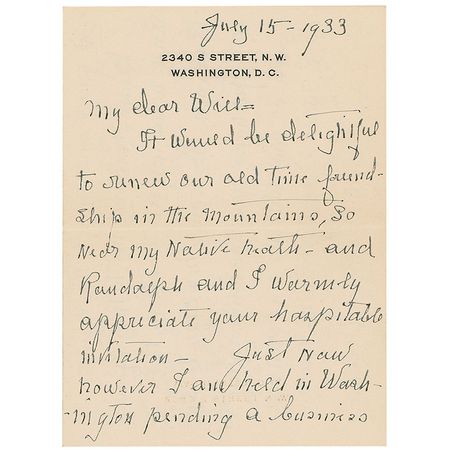 July 15 - 1933
2340 S STREET, N. W.
WASHINGTON, D. C.
My dear Will -
It would be delightful
to renew our old time friend-
ship in the Mountains, so
near my Native heath - and
Randolph and I warmly
appreciate your hospitable
invitation - Just Now
however I am held in Wash-
-ington pending a business